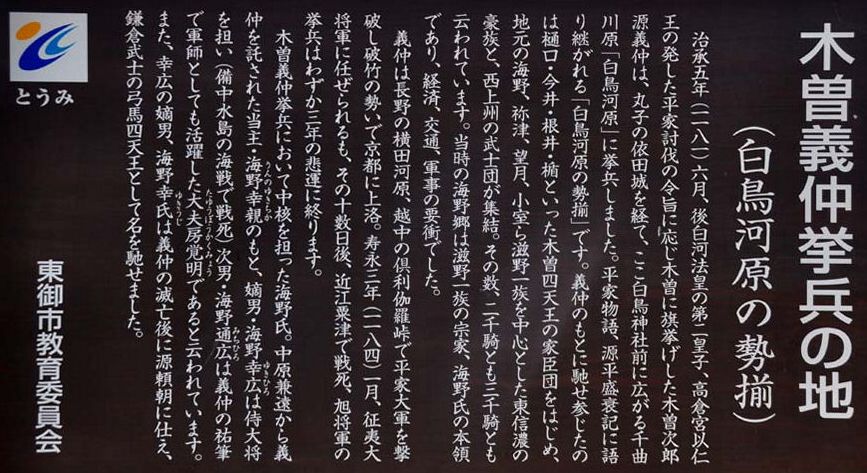 木曽義仲挙兵の地
（白鳥河原の勢揃）
治承五年（一一八一）六月、後白河法皇の第二皇子、高倉宮以仁
王の発した平家討伐の令旨に応じ木曽に旗挙げした木曽次郎
源義仲は、丸子の依田城を経て、ここ白鳥神社前に広がる千曲
川原「白鳥河原」に挙兵しました。平家物語、源平盛衰記に語
り継がれる「白鳥河原の勢揃」です。義仲のもとに馳せ参じたの
は樋口・今井・根井・楯といった木曽四天王の家臣団をはじめ、
地元の海野、祢津、望月、小室ら滋野一族を中心とした東信濃の
豪族と、西上州の武士団が集結。その数、二千騎とも三千騎とも
云われています。当時の海野郷は滋野一族の宗家、海野氏の本領
であり、経済、交通、軍事の要衝でした。
義仲は長野の横田河原、越中の倶利伽羅峠で平家大軍を撃
破し破竹の勢いで京都に上洛。寿永三年（一一八四）一月、征夷大
将軍に任ぜられるも、その十数日後、近江粟津で戦死、旭将軍の
挙兵はわずか三年の悲運に終ります。
木曽義仲挙兵において中核を担った海野氏。中原兼遠から義
仲を託された当主・海野幸親のもと、嫡男・海野幸広は侍大将
うんのゆきちか
ゆきひろ
を担い（備中水島の海戦で戦死）次男・海野通広は義仲の祐筆
みちひろ
で軍師としても活躍した大夫房覚明であると云われています。
たゆうぼうかくみょう
また、幸広の嫡男、海野幸氏は義仲の滅亡後に源頼朝に仕え、
ゆきうじ
鎌倉武士の弓馬四天王として名を馳せました。
東御市教育委員会
とうみ